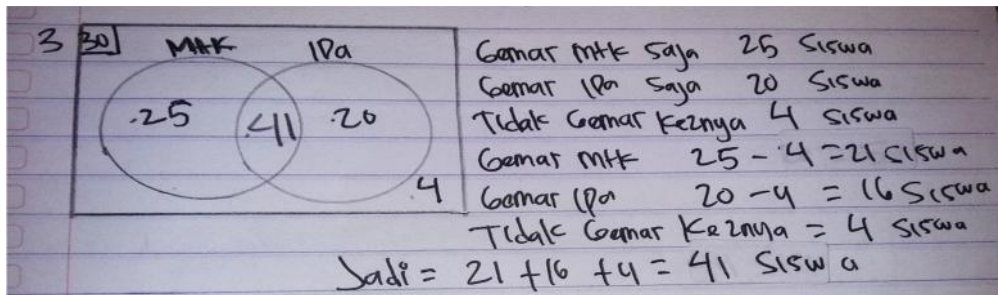 3 30 MtK IPa
.25 .41 .20
4
Gemar mtk Saja 25 Siswa
Gemar IPa Saja 20 Siswa
Tidak Gemar Ke2nya 4 Siswa
Gemar mtk 25 - 4 = 21 Siswa
Gemar IPa 20 - 4 = 16 Siswa
Tidak Gemar Ke2nya = 4 Siswa
Jadi = 21 + 16 + 4 = 41 Siswa